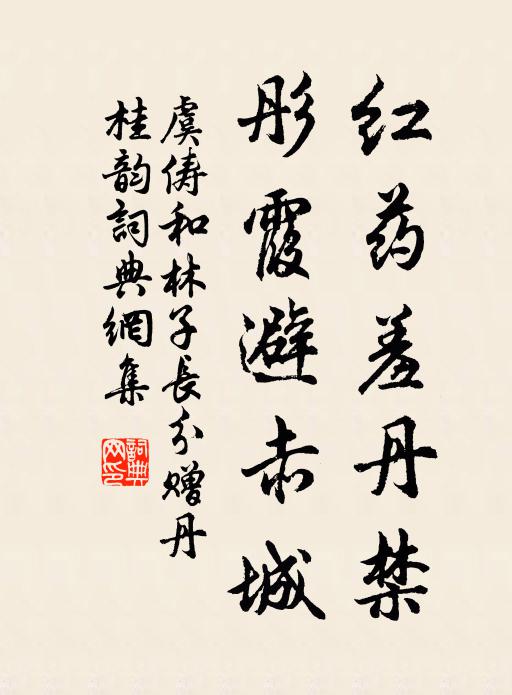 红药羞丹禁
彤霞避赤城
虞俦和林子长分赠丹
桂韵詞典網集
詞典
网印